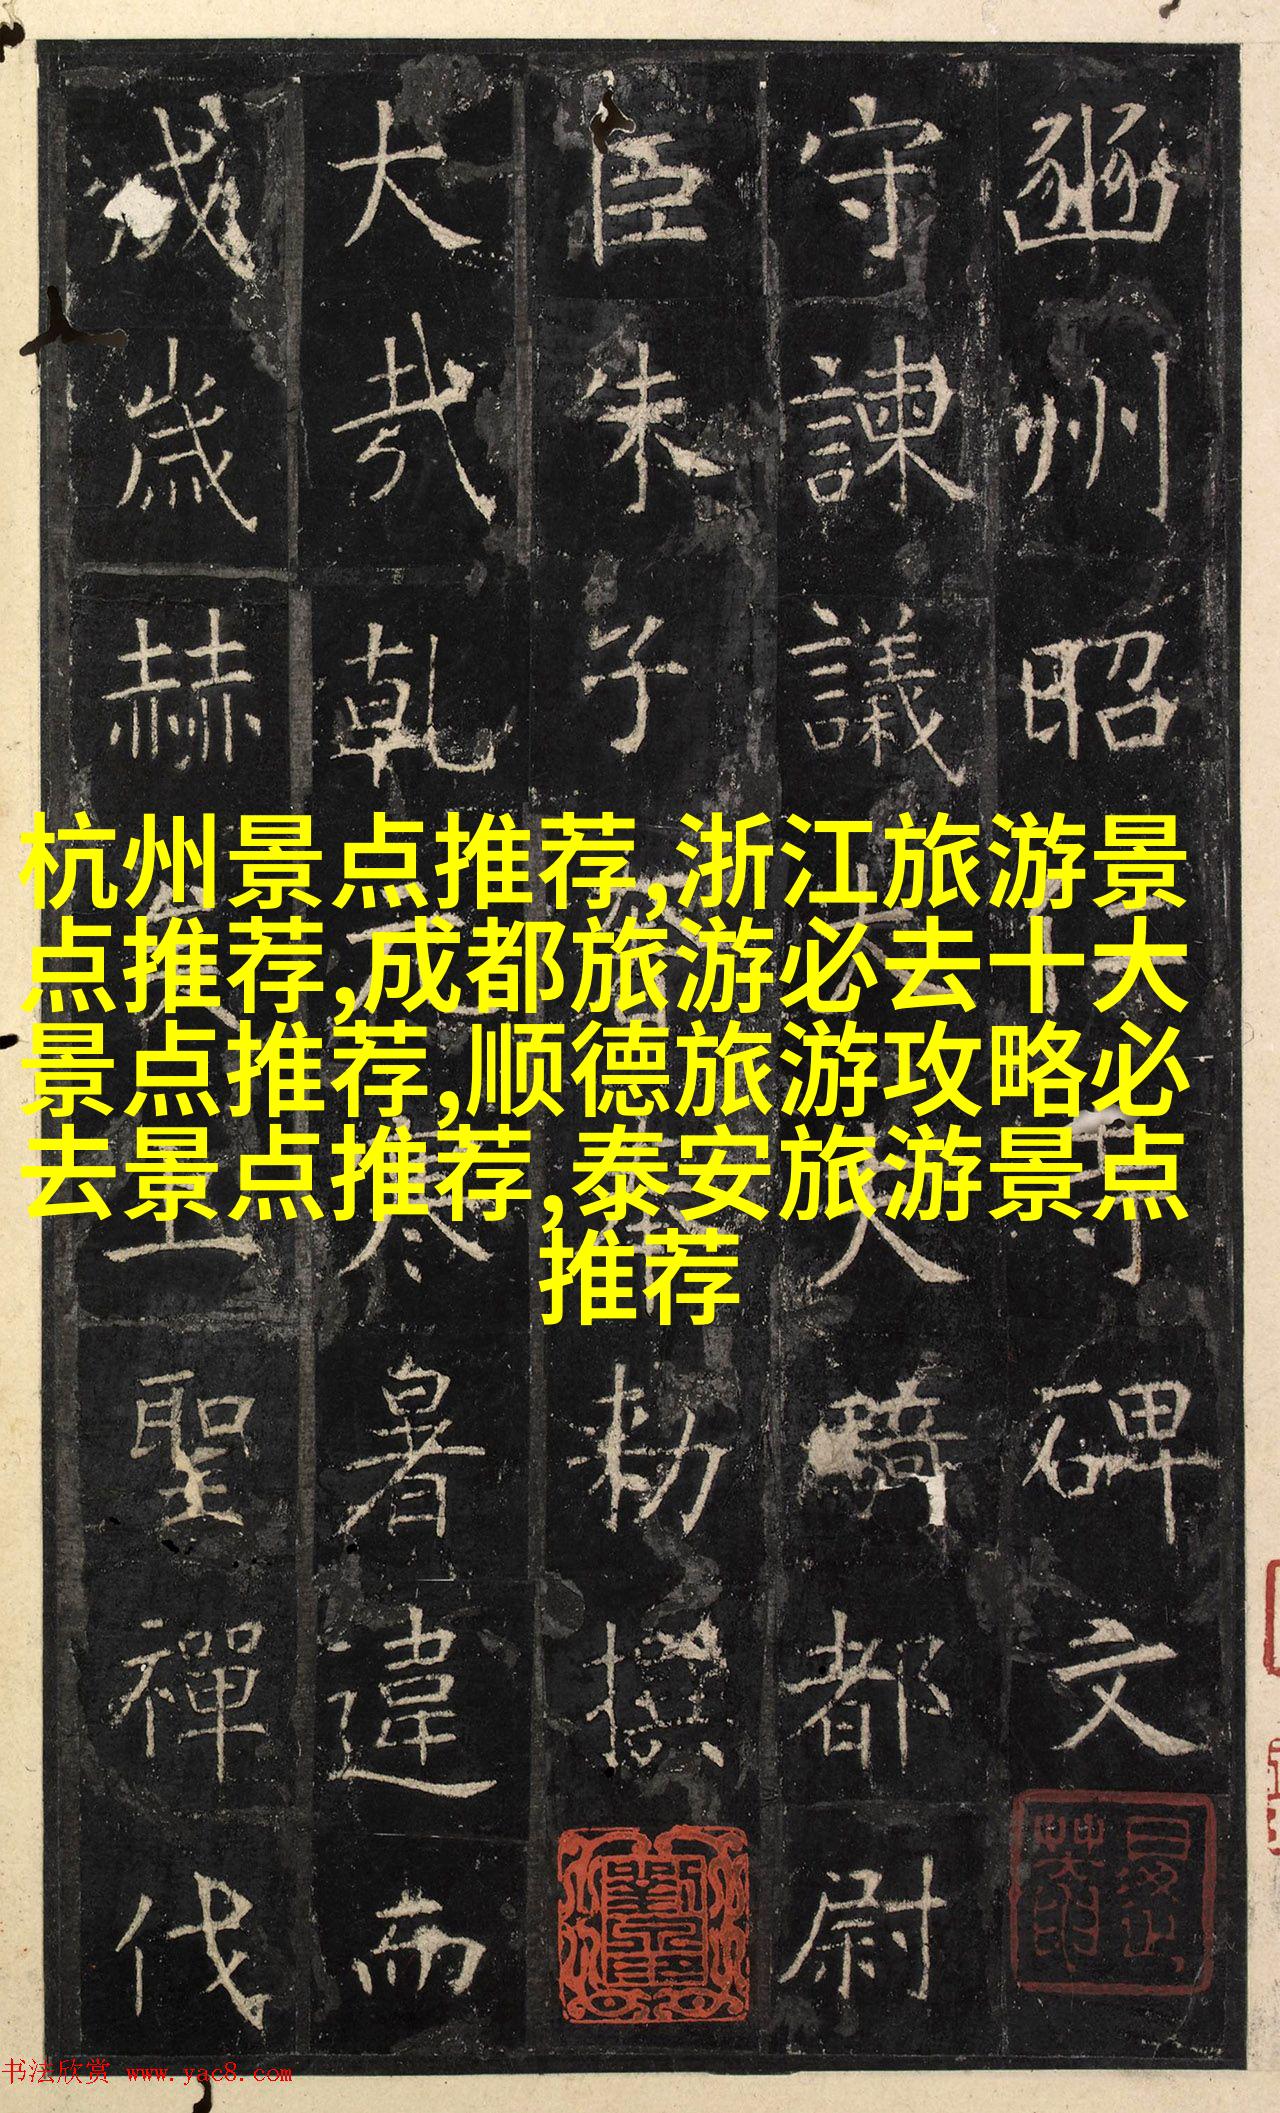 豳州昭仁寺碑文
守諫議大夫騎都尉
臣朱子奢奉勑撰
大哉乾元寒暑違而
成歲赫矣上聖禪代
杭州景点推荐,浙江旅游景
点推荐,成都旅游必去十大
景点推荐,顺德旅游攻略必
去景点推荐,泰安旅游景点
推荐
书法欣赏 www.yac8.com